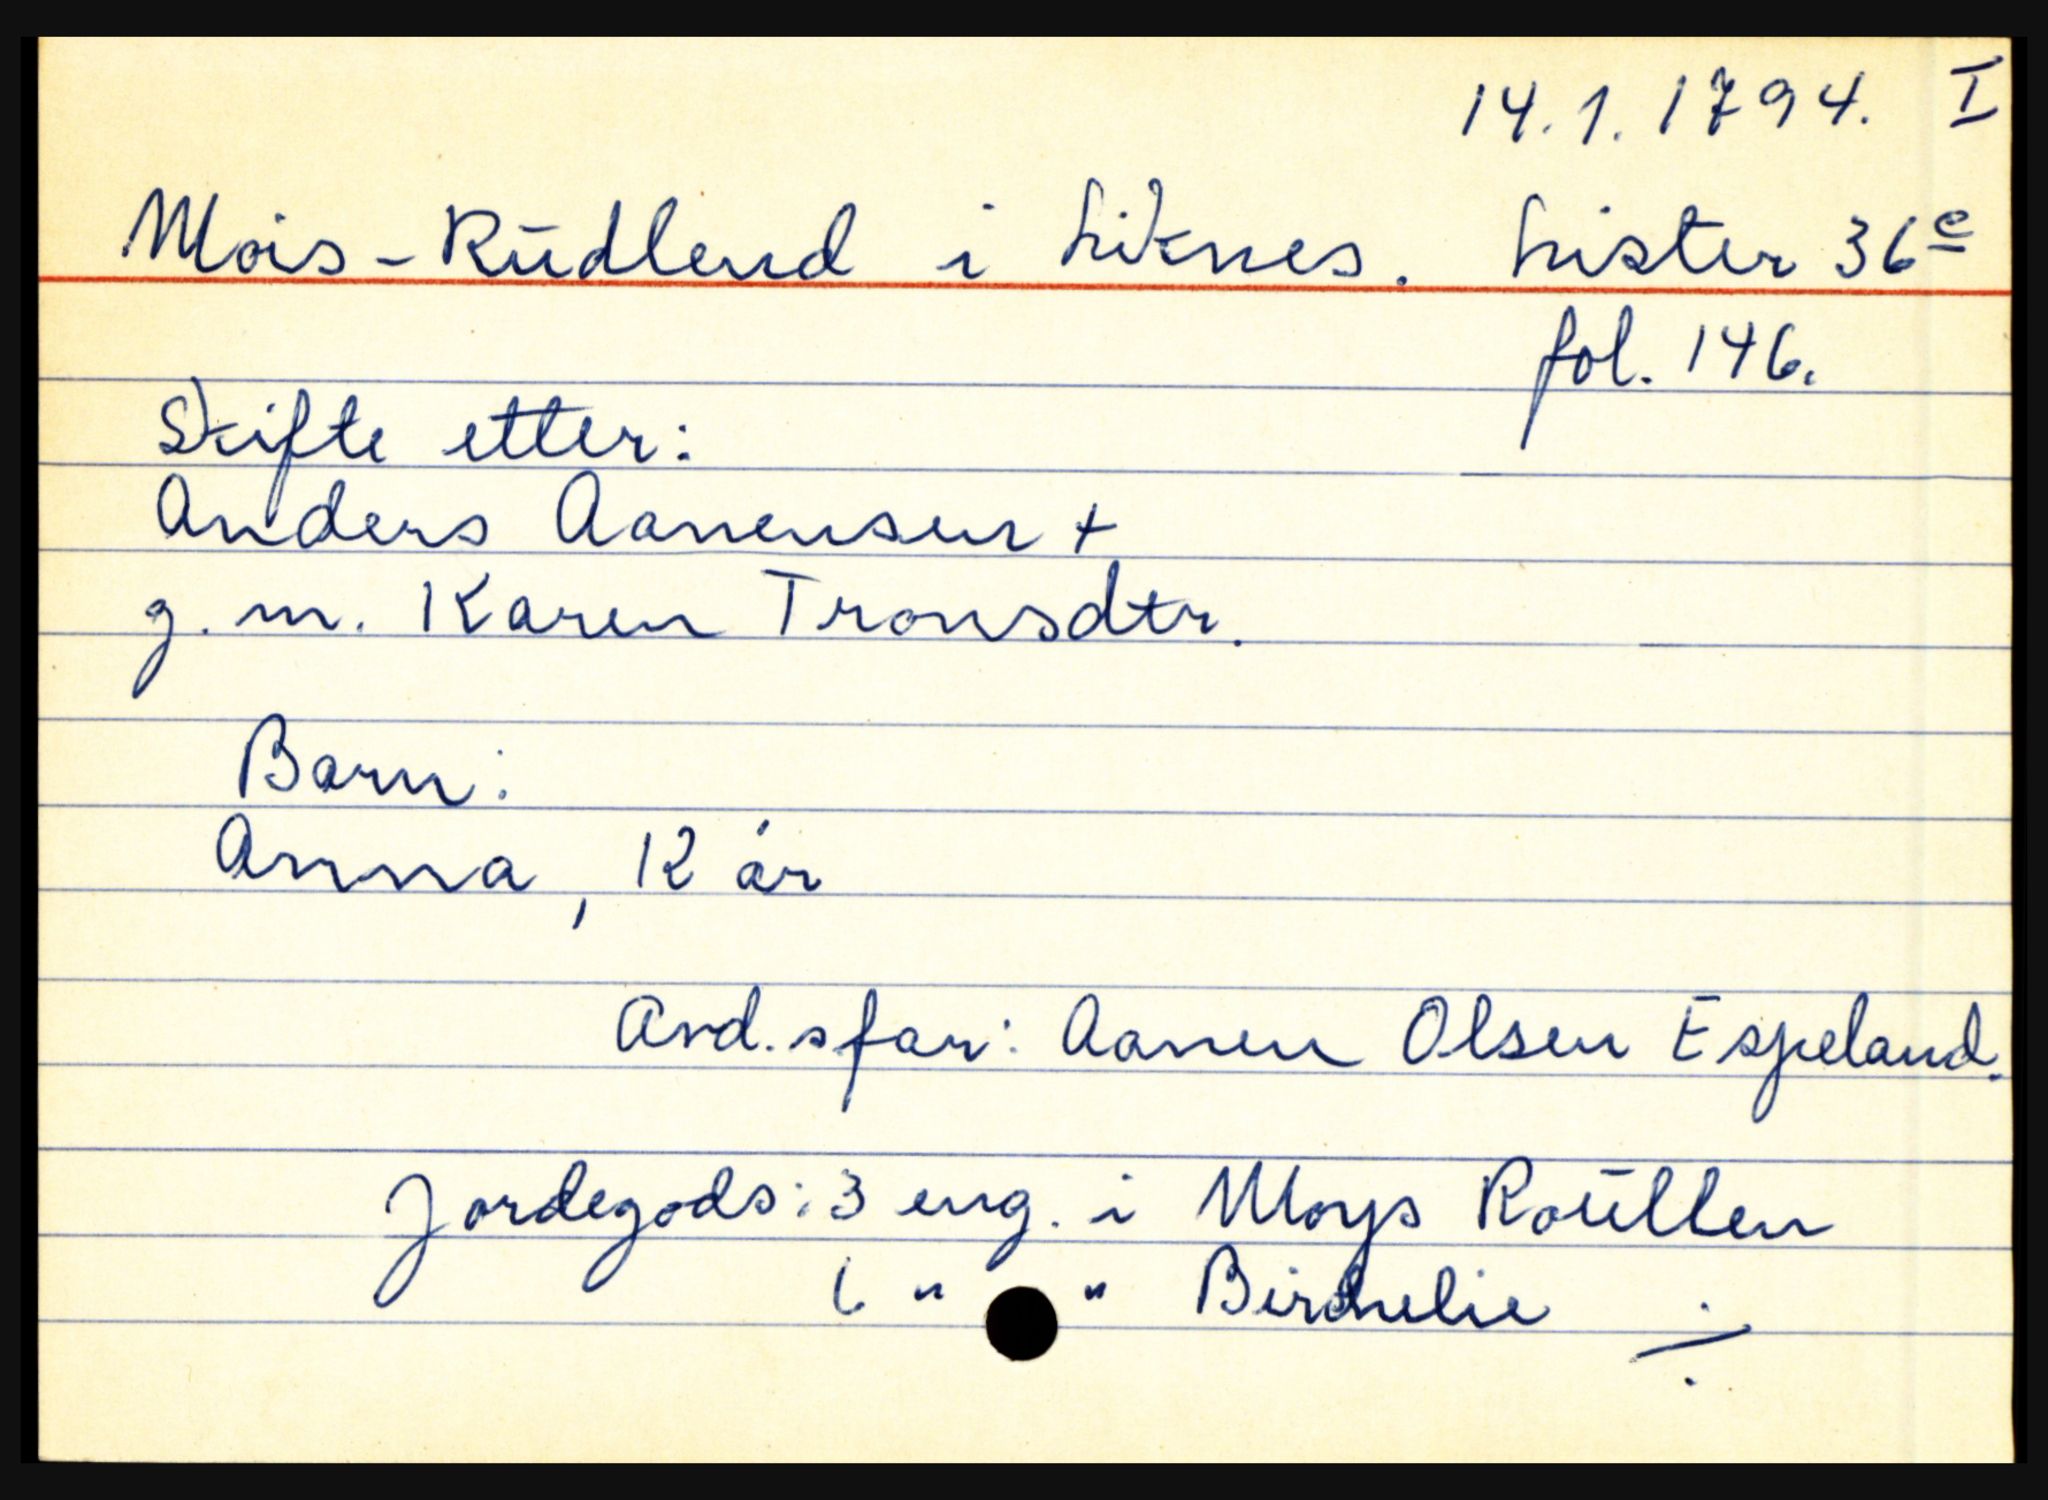 14.1.1794. I
Mois - Rudlend i Liknes. Lister 36e
fol. 146.
Skifte etter:
Anders Aanensen +
g. m. Karen Tronsdtr.
Barn:
Anna, 12 år
Avd.sfar: Aanen Olsen Espeland.
Jordegods: 3 eng. i Moys Roullen
6 " " Birchelie